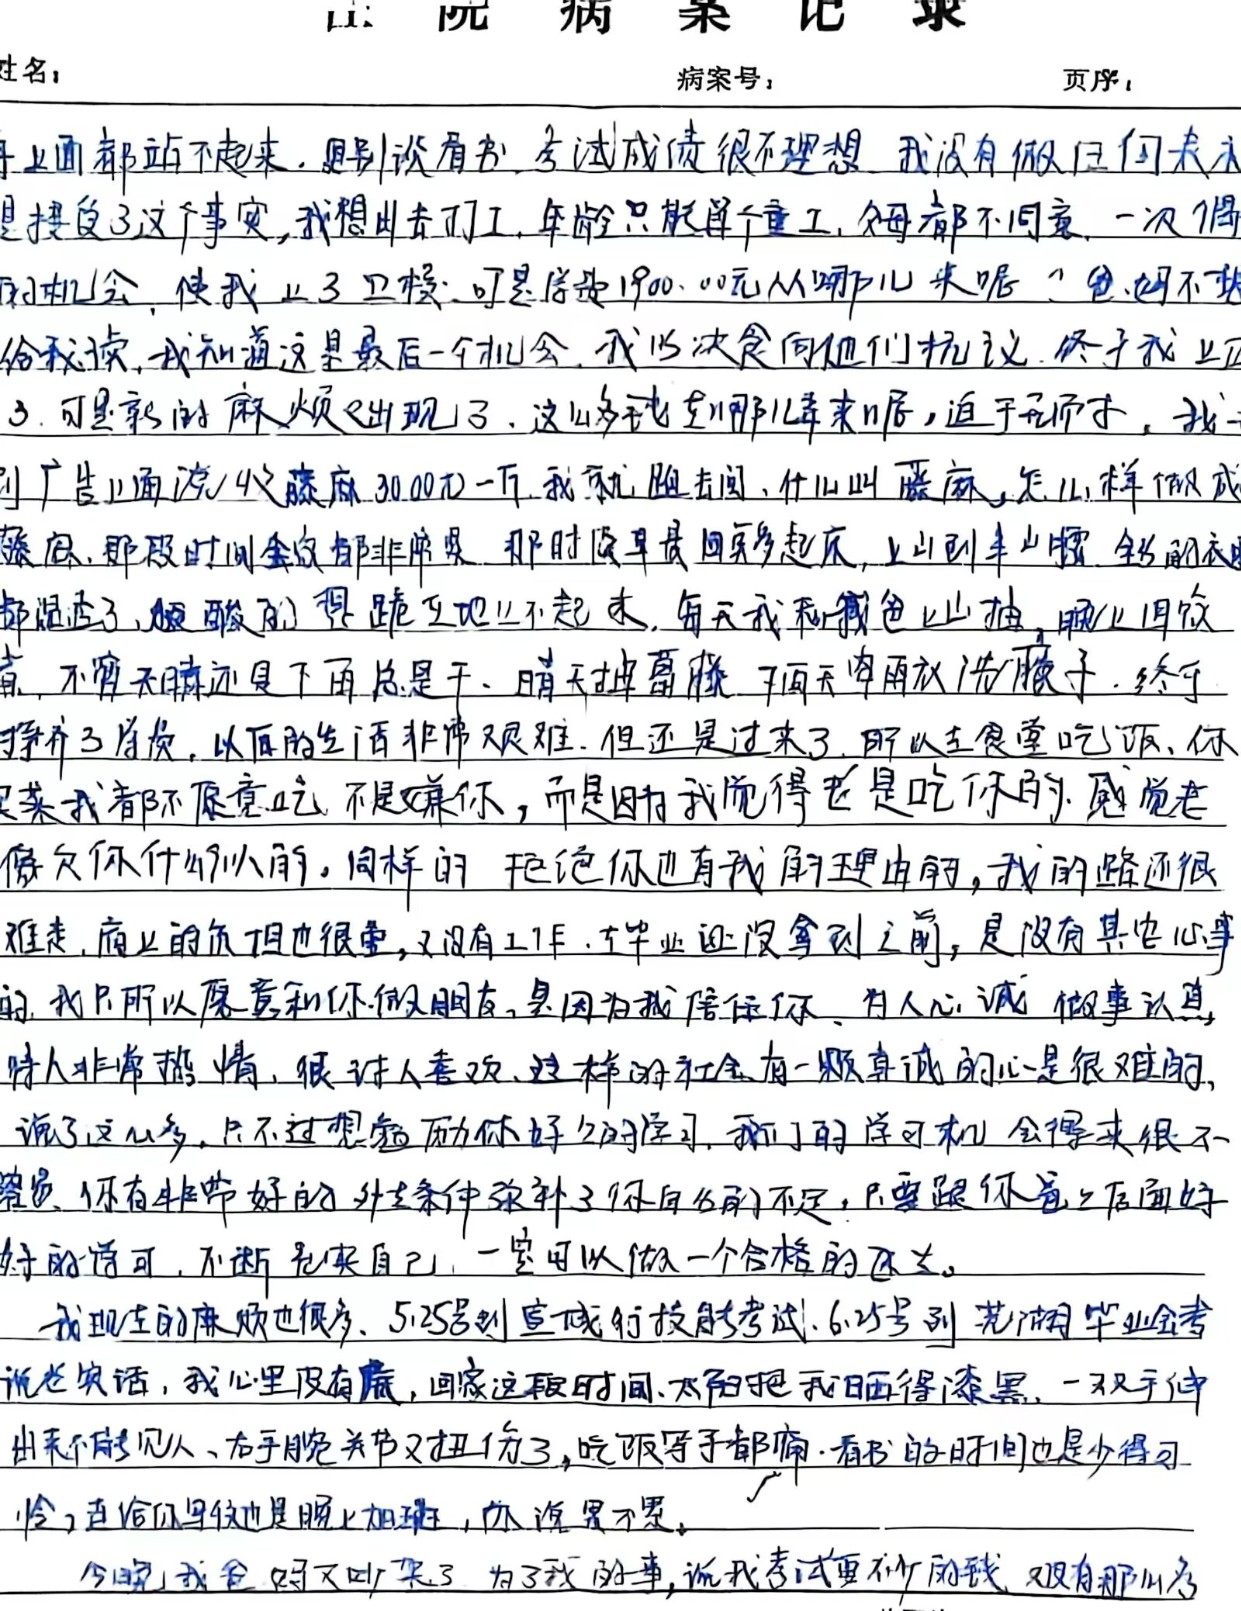 住院病案记录
姓名： 病案号： 页序：
上面都站不起来．更别谈看书．考试成绩很不理想 我没有做任何表示
是接受了这个事实，我想出去打工．年龄只能算个童工．父母都不同意．一次偶
的机会，使我上了卫校．可是学费1900.00元从哪儿来呢？爸．妈不想
给我读，我知道这是最后一个机会．我以决食向他们抗议．终于我上卫
了．可是新的麻烦又出现了．这么多钱到哪儿弄来呢，迫于无奈．我
到广告上面说收藤麻3000元一斤．我就跑去问．什么叫藤麻，怎么样做成
藤麻．那段时间全家都非常累 那时候早晨四点多起床，上山到半山腰 全身的衣服
都湿透了．腿酸的 跪在地上不起来．每天我和我爸上山抽，晚上回家
煮．不管天晴还是下雨总是干．晴天抽葛藤 下雨天穿雨衣洗藤子．终于
挣齐了学费．以后的生活非常艰难．但还是过来了．所以在食堂吃饭．你
买菜我都不愿意吃 不是嫌你，而是因为我觉得老是吃你的．感觉老
像欠你什么似的。同样的 拒绝你也有我的理由的，我的路还很
难走．肩上的负担也很重，又没有工作．在毕业证没拿到之前，是没有其它心事
的．我只所以愿意和你做朋友，是因为我信任你、为人心诚 做事认真，
待人非常热情．很讨人喜欢．这样的社会有一颗真诚的心是很难的，
说了这么多．只不过想勉励你好好的学习．我们的学习机会得来很不
容易．你有非常好的外在条件弥补了你自身的不足，只要跟你爸爸后面好
好的学习，不断充实自己，一定可以做一个合格的医生。
我现在的麻烦也很多．5.25号到宣城行技能考试．6.25号到芜湖毕业会考
说老实话，我心里没有底，回家这段时间．太阳把我晒得漆黑．一双手伸
出来不能见人、右手腕关节又扭伤了，吃饭等于都痛．看书的时间也是少得可
怜，连给你写信也是晚上加班，你说累不累。
今晚我爸妈又吵架了 为了我的事，说我考试要不少的钱 又没有那么多